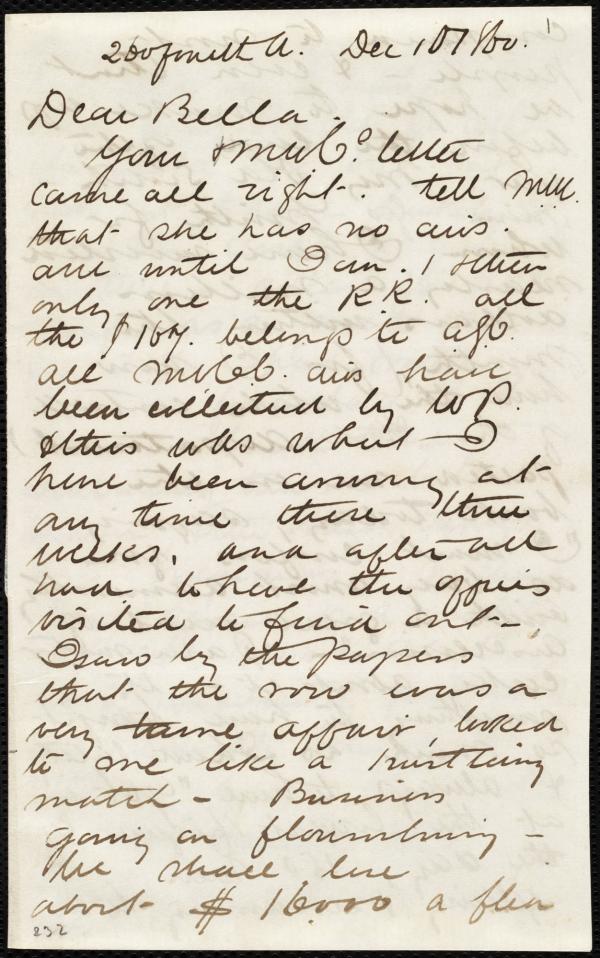 1
Dec 10 / 60.
Dear Bella.
Your & letter
came all right. tell
that she has no divs.
due until Jan. 1 & then
only one the R.R. all
the $167. belongs to
all divs have
been collected by WP.
& this was what I
have been at
any time these three
weeks, and after all
had to have the offices
visited to find out -
I saw by the papers
that the row was a
very tame affair, looked
to me like a
match - Business
going on flourishing -
We shall lose
about $ 16.000 a
232